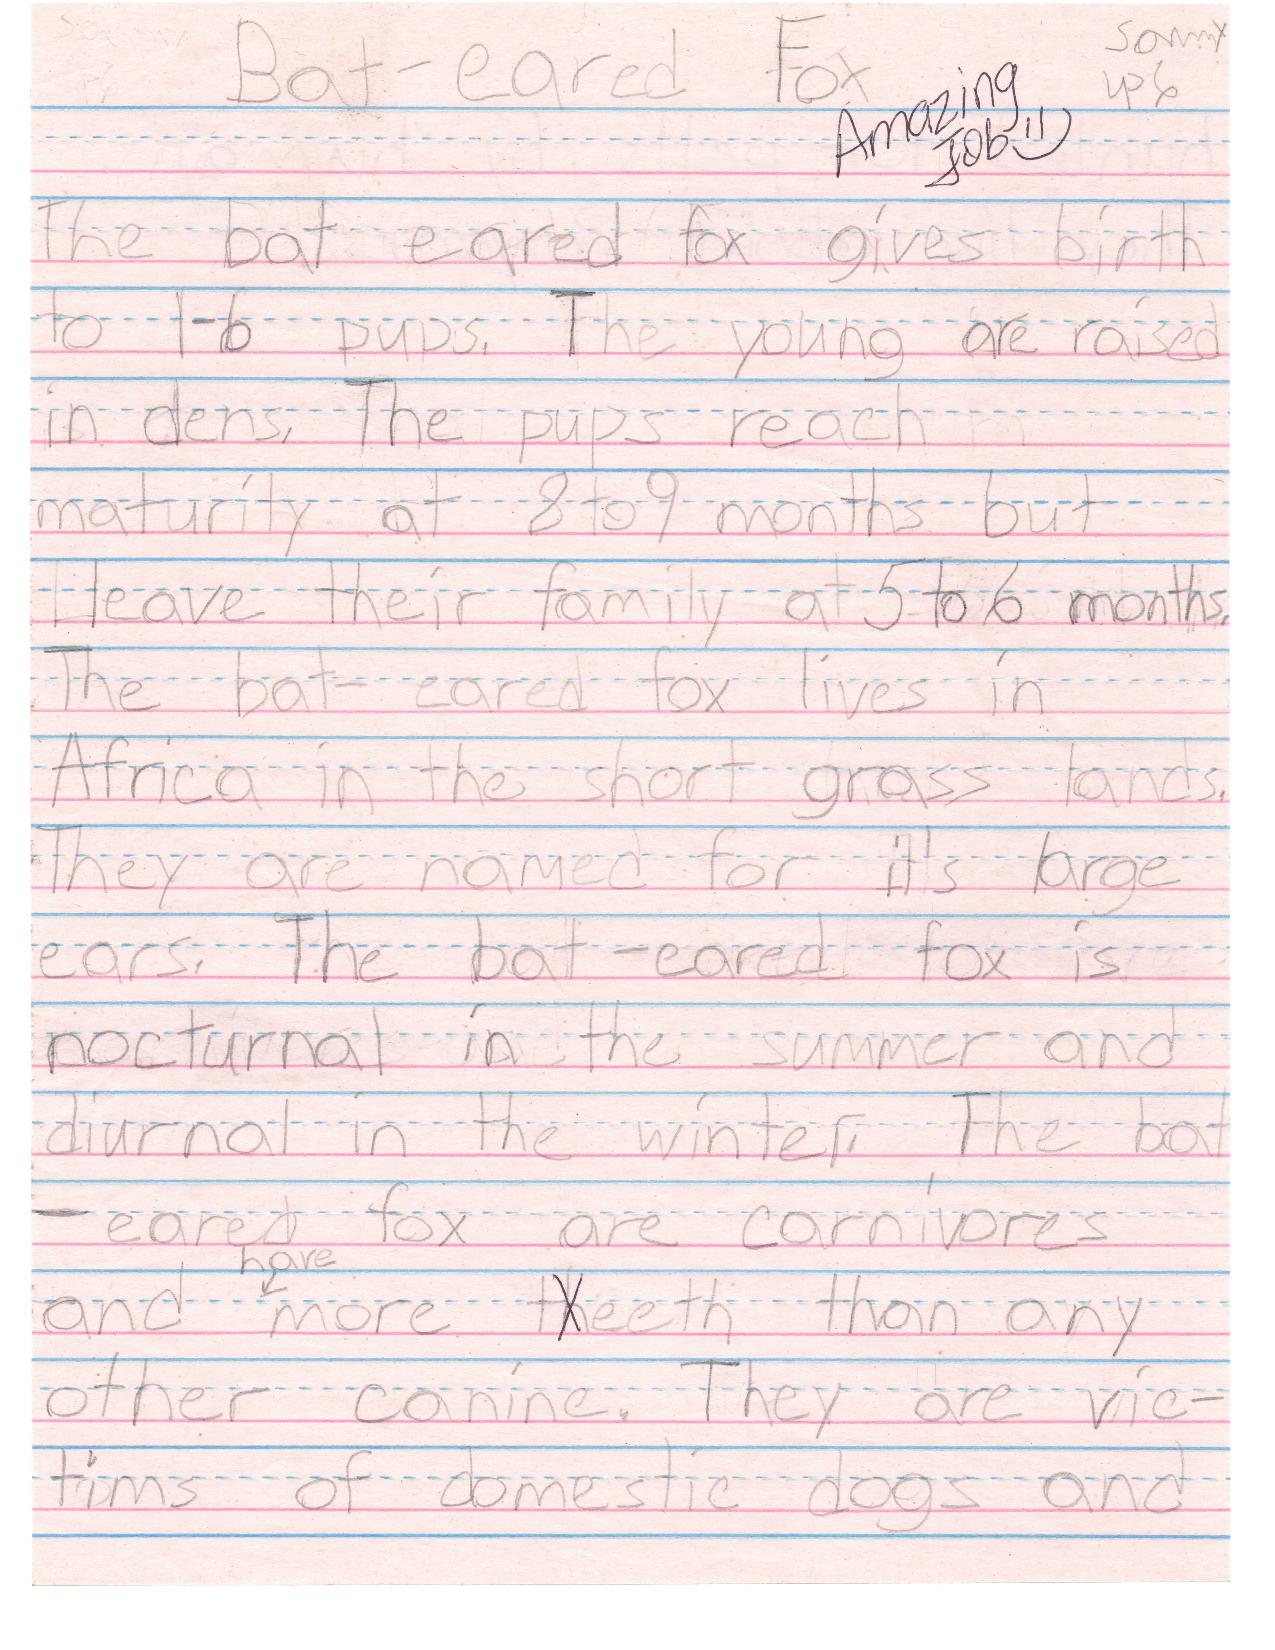 Bat-eared Fox
Sammy
Amazing
Job!!
The bat eared fox gives birth
to 1-6 pups. The young are raised
in dens. The pups reach
maturity at 8 to 9 months but
leave their family at 5 to 6 months.
The bat-eared fox lives in
Africa in the short grass lands.
They are named for it's large
ears. The bat-eared fox is
nocturnal in the summer and
diurnal in the winter. The bat
-eared fox are carnivores
have
and more theeth than any
other canine. They are vic-
tims of domestic dogs and